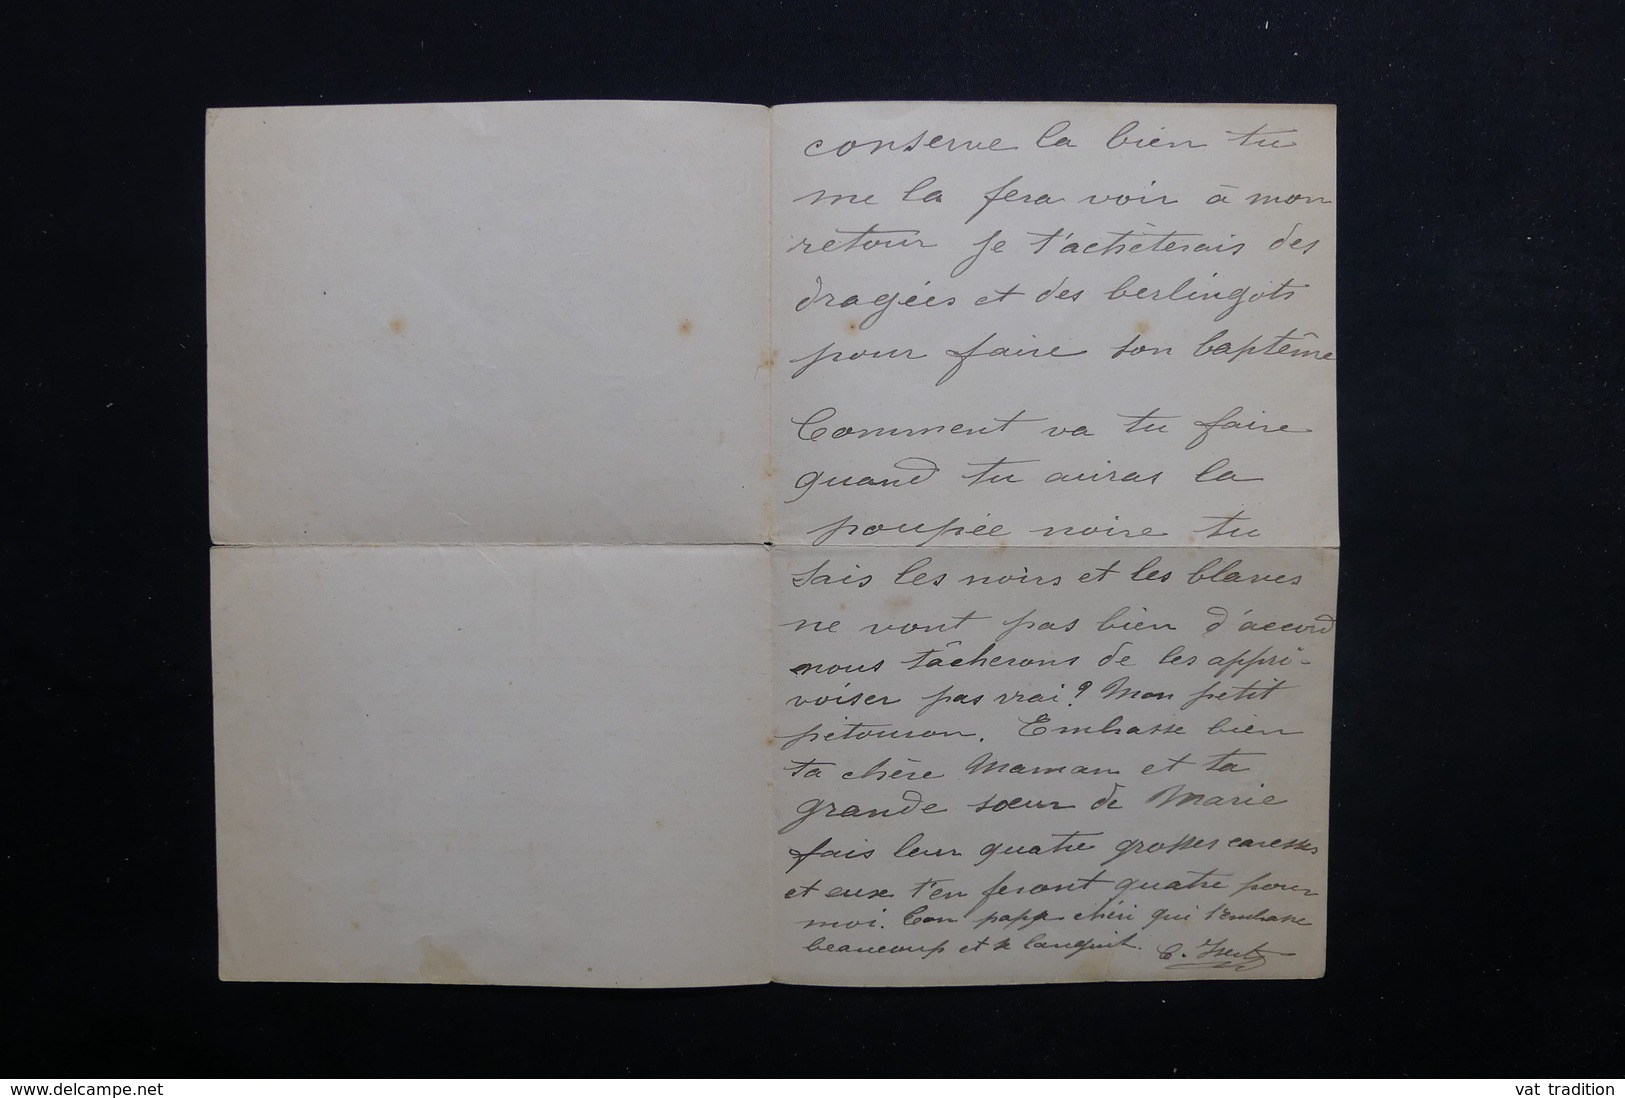 conserve la bien tu
me la fera voir à mon
retour Je t'achèterais des
dragées et des berlingots
pour faire son baptême
Comment va tu faire
quand tu auras la
poupée noire tu
sais les noirs et les blancs
ne vont pas bien d'accord
nous tâcherons de les appri-
voiser pas vrai? Mon petit
pitouron. Embasse bien
ta chère Maman et ta
grande sœur de Marie
fais leur quatre grosses caresses
et eux t'en feront quatre pour
moi. Ton papa chéri qui t'embrasse
beaucoup et se languit. C.
www.delcampe.net
vat tradition